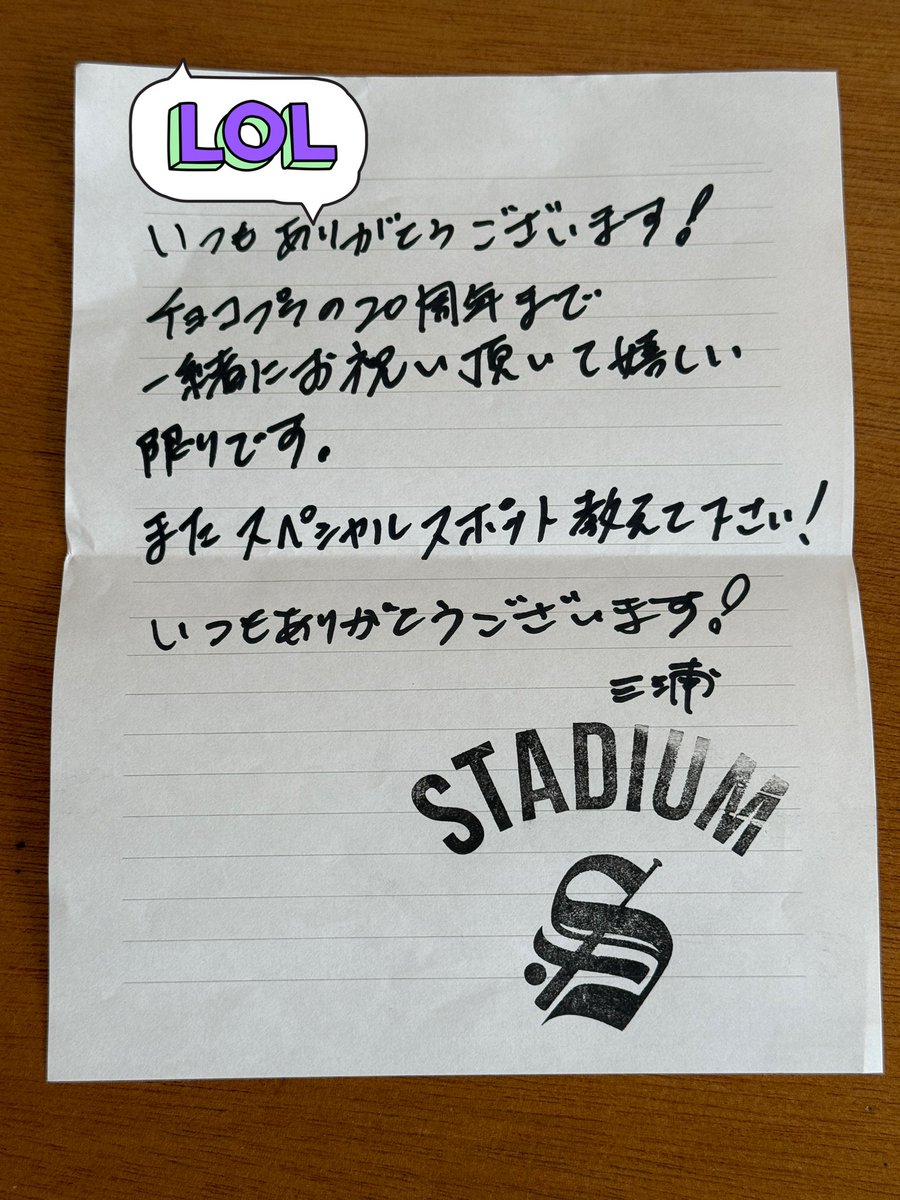 LOL
いつもありがとうございます!
チョコプラの20周年まで
一緒にお祝い頂いて嬉しい
限りです。
またスペシャルスポット教えて下さい!
いつもありがとうございます!
三浦
STADIUM
S